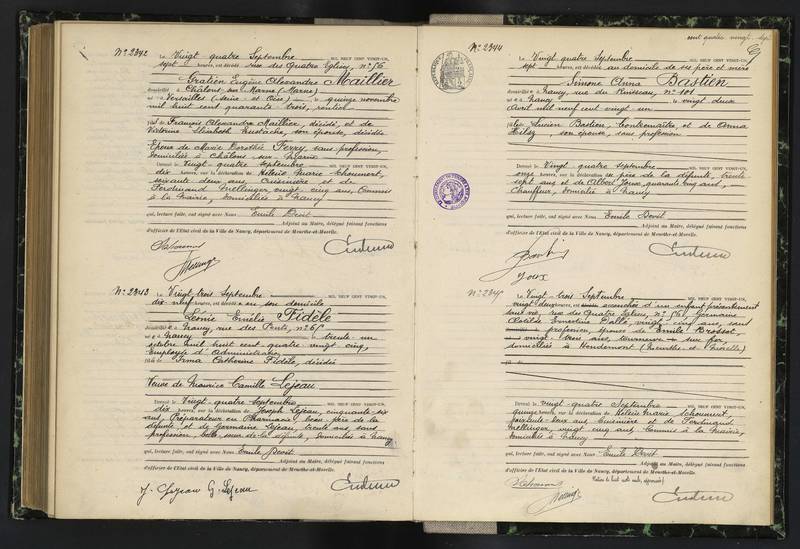 N° 2342
Le Vingt quatre Septembre MIL NEUF CENT VINGT-UN,
sept heures, est décédé rue des Quatre Eglises, n° 56
Gratien Eugène Alexandre Maillier
domicilié à Châlons sur Marne (Marne)
né à Versailles (Seine et Oise) le quinze novembre
mil huit cent quarante trois, rentier
fils de François Alexandre Maillier, décédé, et de
Victorine Elisabeth Eustache, son épouse, décédée
Epoux de Marie Dorothée Ferry, sans profession,
domiciliée à Châlons sur Marne
Dressé le Vingt quatre septembre MIL NEUF CENT VINGT-UN,
dix heures, sur la déclaration de Hélène Marie
soixante deux ans, Cuisinière, et de
Ferdinand Mellinger, vingt cinq ans, Commis
à la Mairie, domiciliés à Nancy
qui, lecture faite, ont signé avec Nous Emile Devit
Adjoint au Maire, délégué faisant fonctions
d'officier de l'Etat civil de la Ville de Nancy, département de Meurthe-et-Moselle.
N° 2343
Le Vingt trois Septembre MIL NEUF CENT VINGT-UN,
dix neuf heures, est décédée en son domicile
Léonie Emélie Fidèle
domiciliée à Nancy, rue des Ponts, n° 65
née à Nancy le trente un
octobre mil huit cent quatre vingt cinq,
Employée d'Administration
fille de Irma Catherine Fidèle, décédée
Veuve de Maurice Camille Lejeau
Dressé le Vingt quatre septembre MIL NEUF CENT VINGT-UN,
dix heures, sur la déclaration de Joseph Lejeau, cinquante six
ans, Préparateur en Pharmacie, beau père de la
défunte et de Germaine Lejeau, trente ans, sans
profession, belle sœur de la défunte, domiciliés à Nancy
qui, lecture faite, ont signé avec Nous Emile Devit
Adjoint au Maire, délégué faisant fonctions
d'officier de l'Etat civil de la Ville de Nancy, département de Meurthe-et-Moselle.
J. Lejeau G. Lejeau
cent quatre vingt sept
N° 2344
Le Vingt quatre Septembre MIL NEUF CENT VINGT-UN,
sept heures, est décédée au domicile de ses père et mère
Simone Anna Bastien
domiciliée à Nancy, rue du Ruisseau, n° 101
née à Nancy le vingt deux
Avril mil neuf cent vingt un
fille de Lucien Bastien, Contremaître, et de Anna
son épouse, sans profession
Dressé le Vingt quatre septembre MIL NEUF CENT VINGT-UN,
onze heures, sur la déclaration du père de la défunte, trente
sept ans et de Albert Joux, quarante cinq ans,
Chauffeur, domicilié à Nancy
qui, lecture faite, ont signé avec Nous Emile Devit
Adjoint au Maire, délégué faisant fonctions
d'officier de l'Etat civil de la Ville de Nancy, département de Meurthe-et-Moselle.
Joux
N° 2345
Le Vingt trois Septembre MIL NEUF CENT VINGT-UN,
vingt deux heures, est accouchée d'un enfant présentement
sans vie, rue des Quatre Eglises, n° 56, Germaine
Clotilde Ernestine Dalle, vingt cinq ans, sans
profession, épouse de Emile Brossot,
vingt trois ans, tourneur sur fer,
domiciliés à Houdemont (Meurthe et Moselle)
Dressé le vingt quatre Septembre MIL NEUF CENT VINGT-UN,
quinze heures, sur la déclaration de Hélène Marie
soixante deux ans Cuisinière et de Ferdinand
Mellinger, vingt cinq ans, Commis à la Mairie,
domiciliés à Nancy
qui, lecture faite, ont signé avec Nous Emile Devit
Adjoint au Maire, délégué faisant fonctions
d'officier de l'Etat civil de la Ville de Nancy, département de Meurthe-et-Moselle.